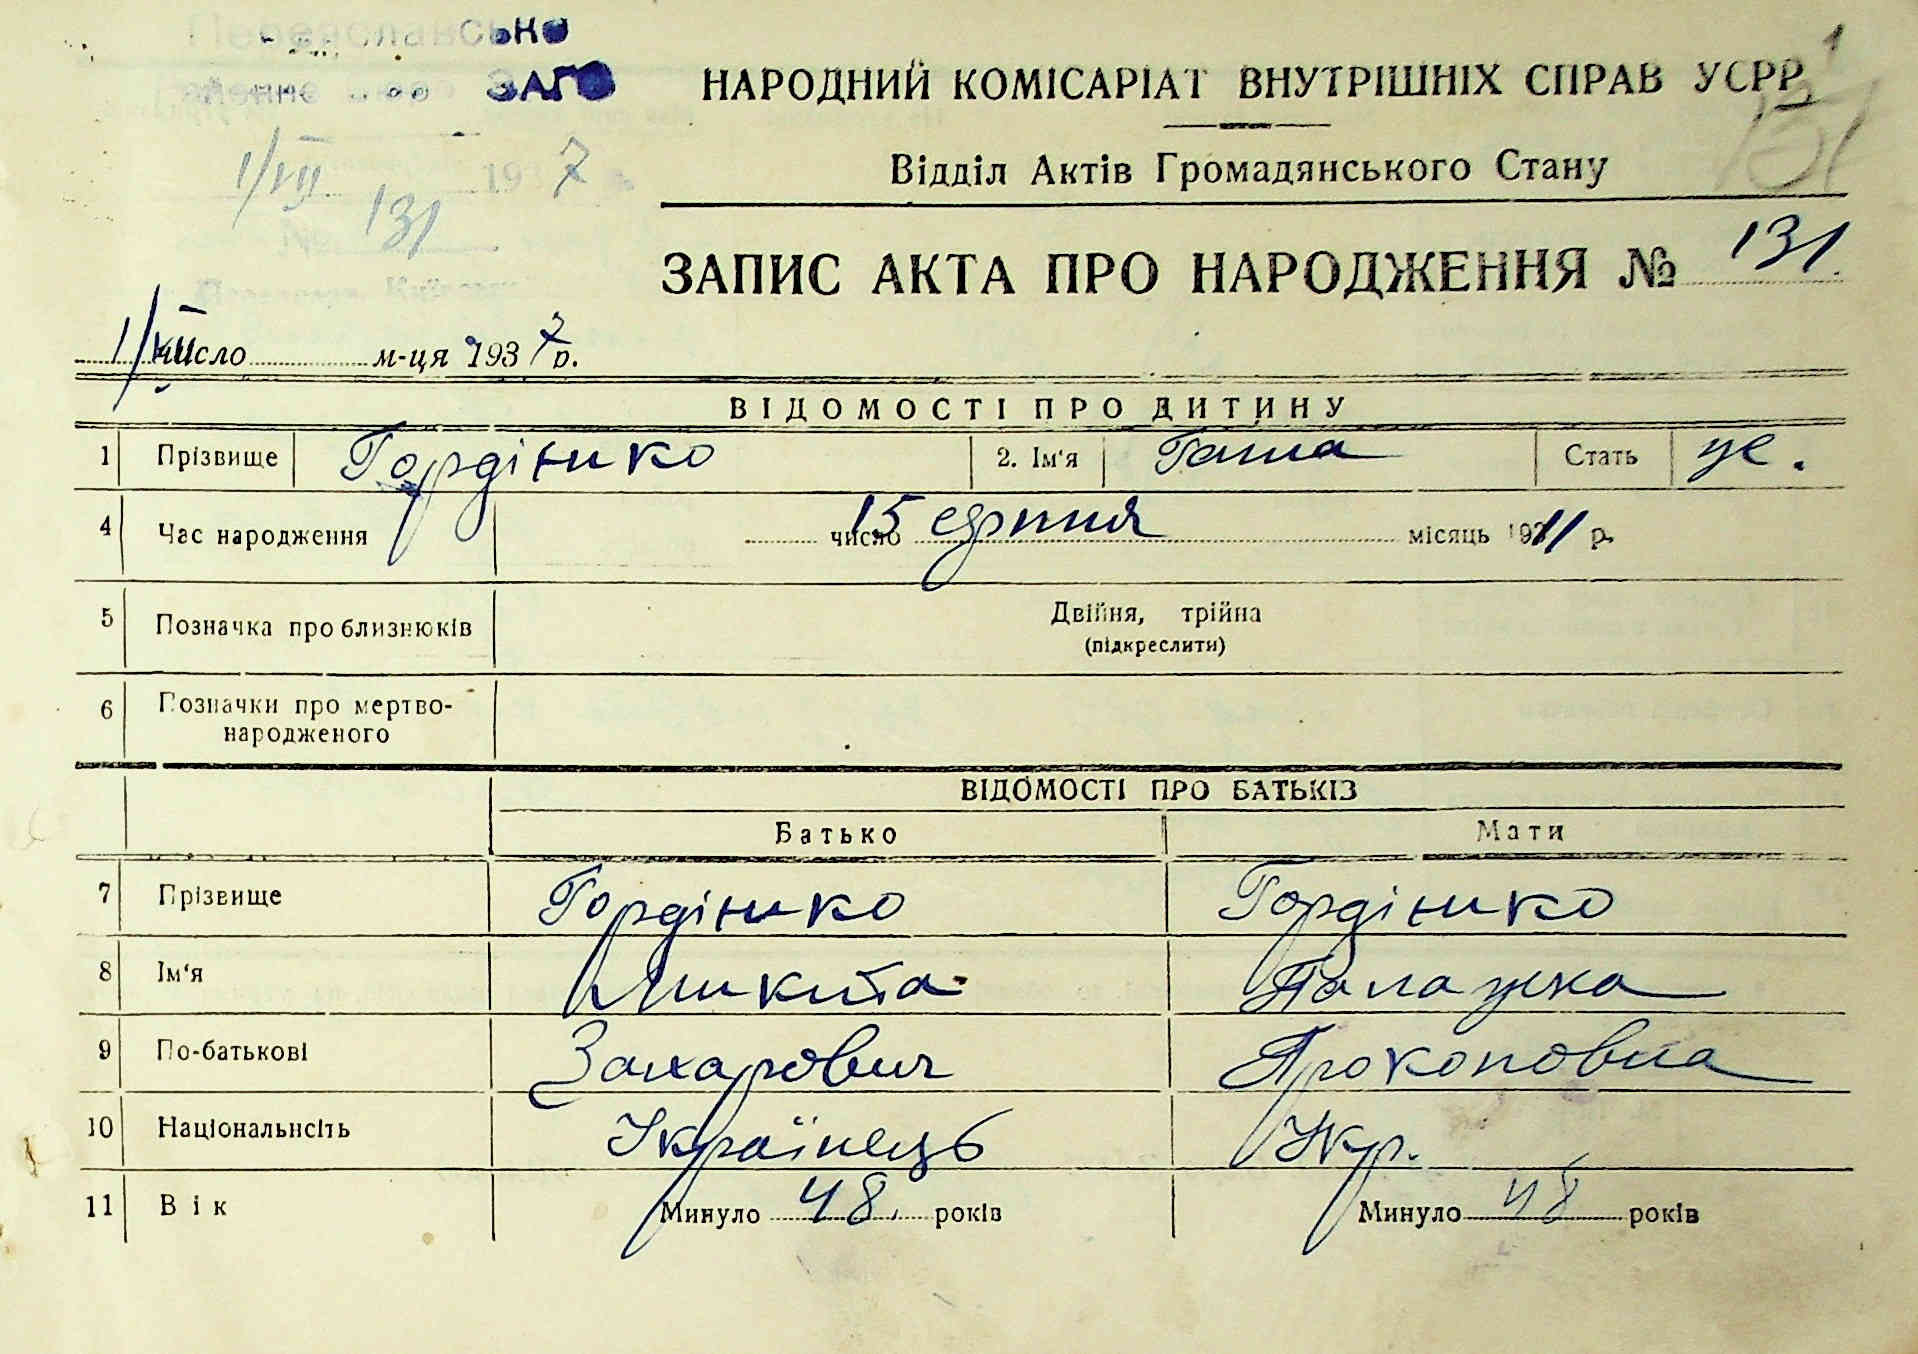 Переяславсько
районне бюро ЗАГС
1/VII 1937
№ 131
НАРОДНИЙ КОМІСАРІАТ ВНУТРІШНІХ СПРАВ УСРР
Відділ Актів Громадянського Стану
131
ЗАПИС АКТА ПРО НАРОДЖЕННЯ № 131
1/VII число м-ця 1937 р.
ВІДОМОСТІ ПРО ДИТИНУ
1 Прізвище Гордієнко 2. Ім'я Ганна Стать ж.
4 Час народження 15 число серпня місяць 1911 р.
5 Позначка про близнюків Двійня, трійна
(підкреслити)
6 Позначки про мертво-
народженого
ВІДОМОСТІ ПРО БАТЬКІВ
Батько Мати
7 Прізвище Гордієнко Гордієнко
8 Ім'я Микита Палажка
9 По-батькові Захарович Прокоповна
10 Національність Українець Укр.
11 Вік Минуло 48 років Минуло 48 років